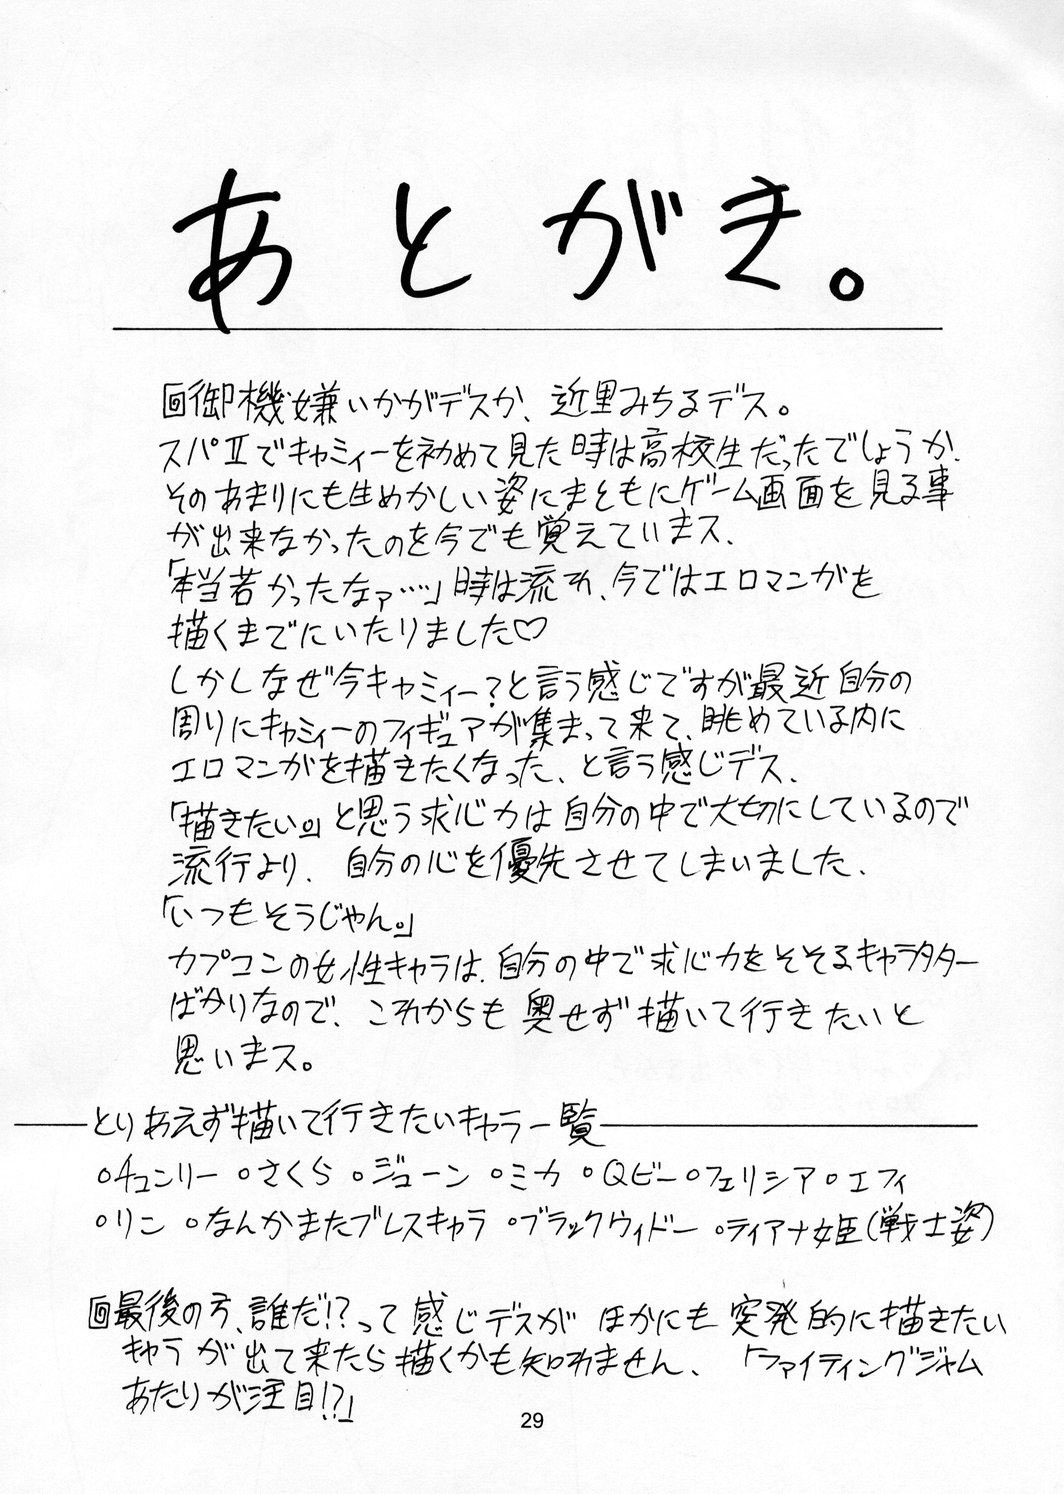 あとがき。
回御機嫌いかがデスか、近里みちるデス。
スパⅡでキャミィーを初めて見た時は高校生だったでしょうか、
そのあまりにも生めかしい姿にまともにゲーム画面を見る事
が出来なかったのを今でも覚えていまス、
「本当若かったなァ…」時は流れ、今ではエロマンガを
描くまでにいたりました♡
しかしなぜ今キャミィー？と言う感じですが最近自分の
周りにキャミィーのフィギュアが集まって来て、眺めている内に
エロマンガを描きたくなった、と言う感じデス、
「描きたい。」と思う求心力は自分の中で大切にしているので
流行より、自分の心を優先させてしまいました、
「いつもそうじゃん。」
カプコンの女性キャラは、自分の中で求心力をそそるキャラクター
ばかりなので、これからも臭せず描いて行きたいと
思いまス。
とりあえず描いて行きたいキャラ一覧
○チュンリー ○さくら ○ジューン ○ミカ ○Qビー ○フェリシア ○エフィ
○リン ○なんかまたブレスキャラ ○ブラックウィドー ○ティアナ姫(戦士姿)
回最後の方、誰だ!?って感じデスがほかにも突発的に描きたい
キャラが出て来たら描くかも知れません、「ファイティングジャム
あたりが注目!?」
29